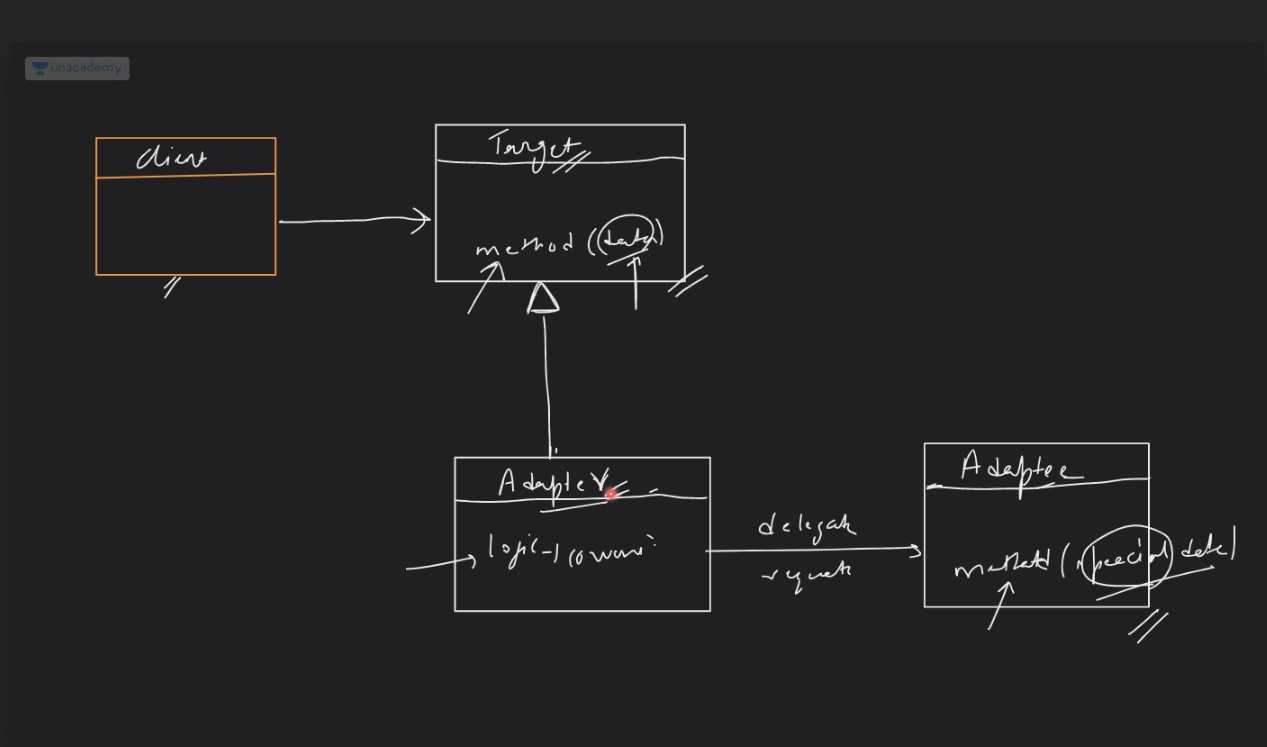 unacademy
Client
Target
method (data)
Adapter
logic
delegate
request
Adaptee
method (special data)